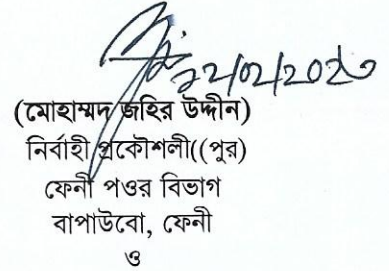 (মোহাম্মদ জহির উদ্দীন)
নির্বাহী প্রকৌশলী((পুর)
ফেনী পওর বিভাগ
বাপাউবো, ফেনী
ও